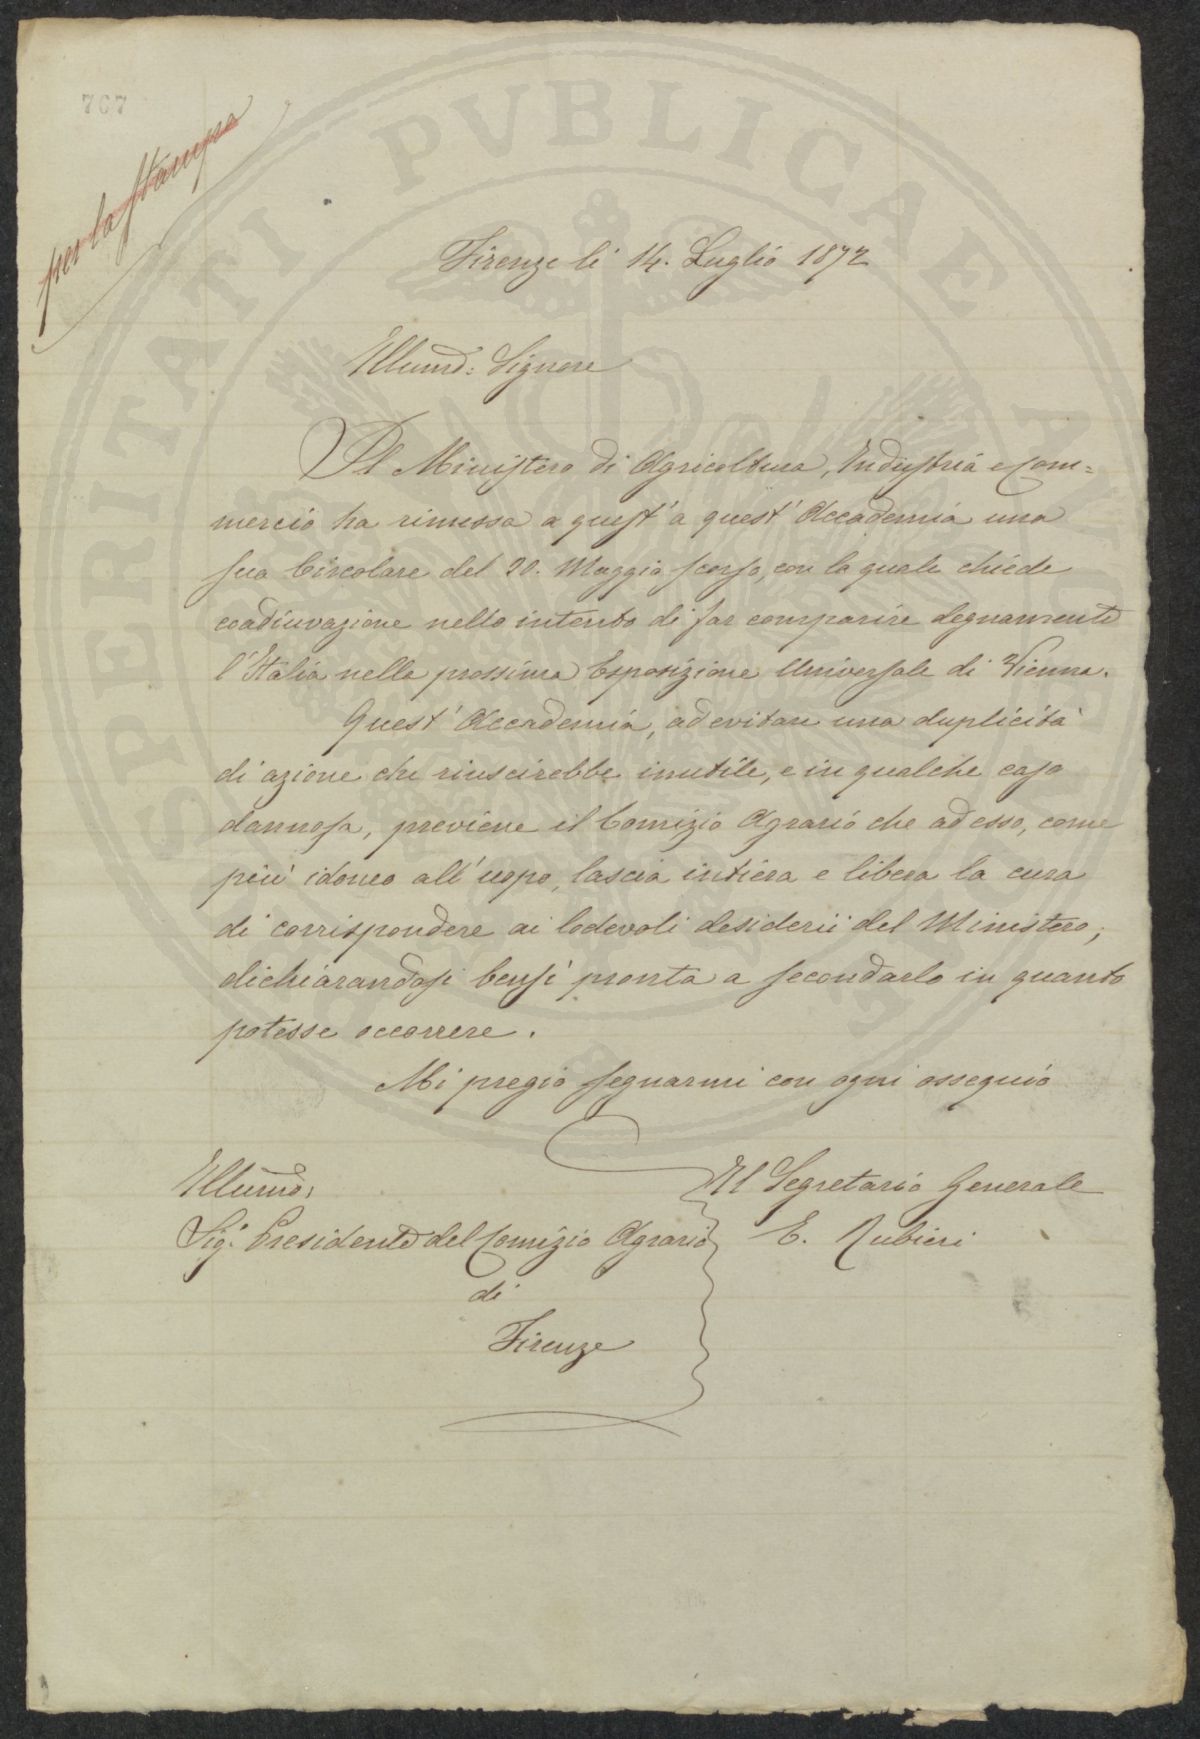 767
per la Stampa
PROSPERITATI PVBLICAE AVGENDAE
Firenze li 14. Luglio 1872
Illumo: Signore
Il Ministero di Agricoltura, Industria e Com=
mercio ha rimessa a quest' a quest' Accademia una
sua Circolare del 20. Maggio scorso, con la quale chiede
coadiuvazione nello intento di far comparire degnamente
l'Italia nella prossima Esposizione Universale di Vienna.
Quest' Accademia, ad evitare una duplicità
di azione che riuscirebbe inutile, e in qualche caso
dannosa, previene il Comizio Agrario che ad esso, come
più idoneo all'uopo, lascia intiera e libera la cura
di corrispondere ai lodevoli desiderii del Ministero;
dichiarandosi bensì pronta a secondarlo in quanto
potesse occorrere.
Mi pregio segnarmi con ogni ossequio
Illumo:
Il Segretario Generale
Sig.r Presidente del Comizio Agrario
E. Rubieri
di
Firenze